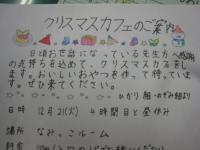 クリスマスカフェのご案内
日頃お世話になっている先生方へ感謝
の気持ちを込めて、クリスマスカフェをし
ます。おいしいおやつを作って待っていま
す。ぜひ来てください。
ひかり組・のぞみ組より
日時 12月21(火) 4時間目と昼休み
場所 なみっこルーム
料金